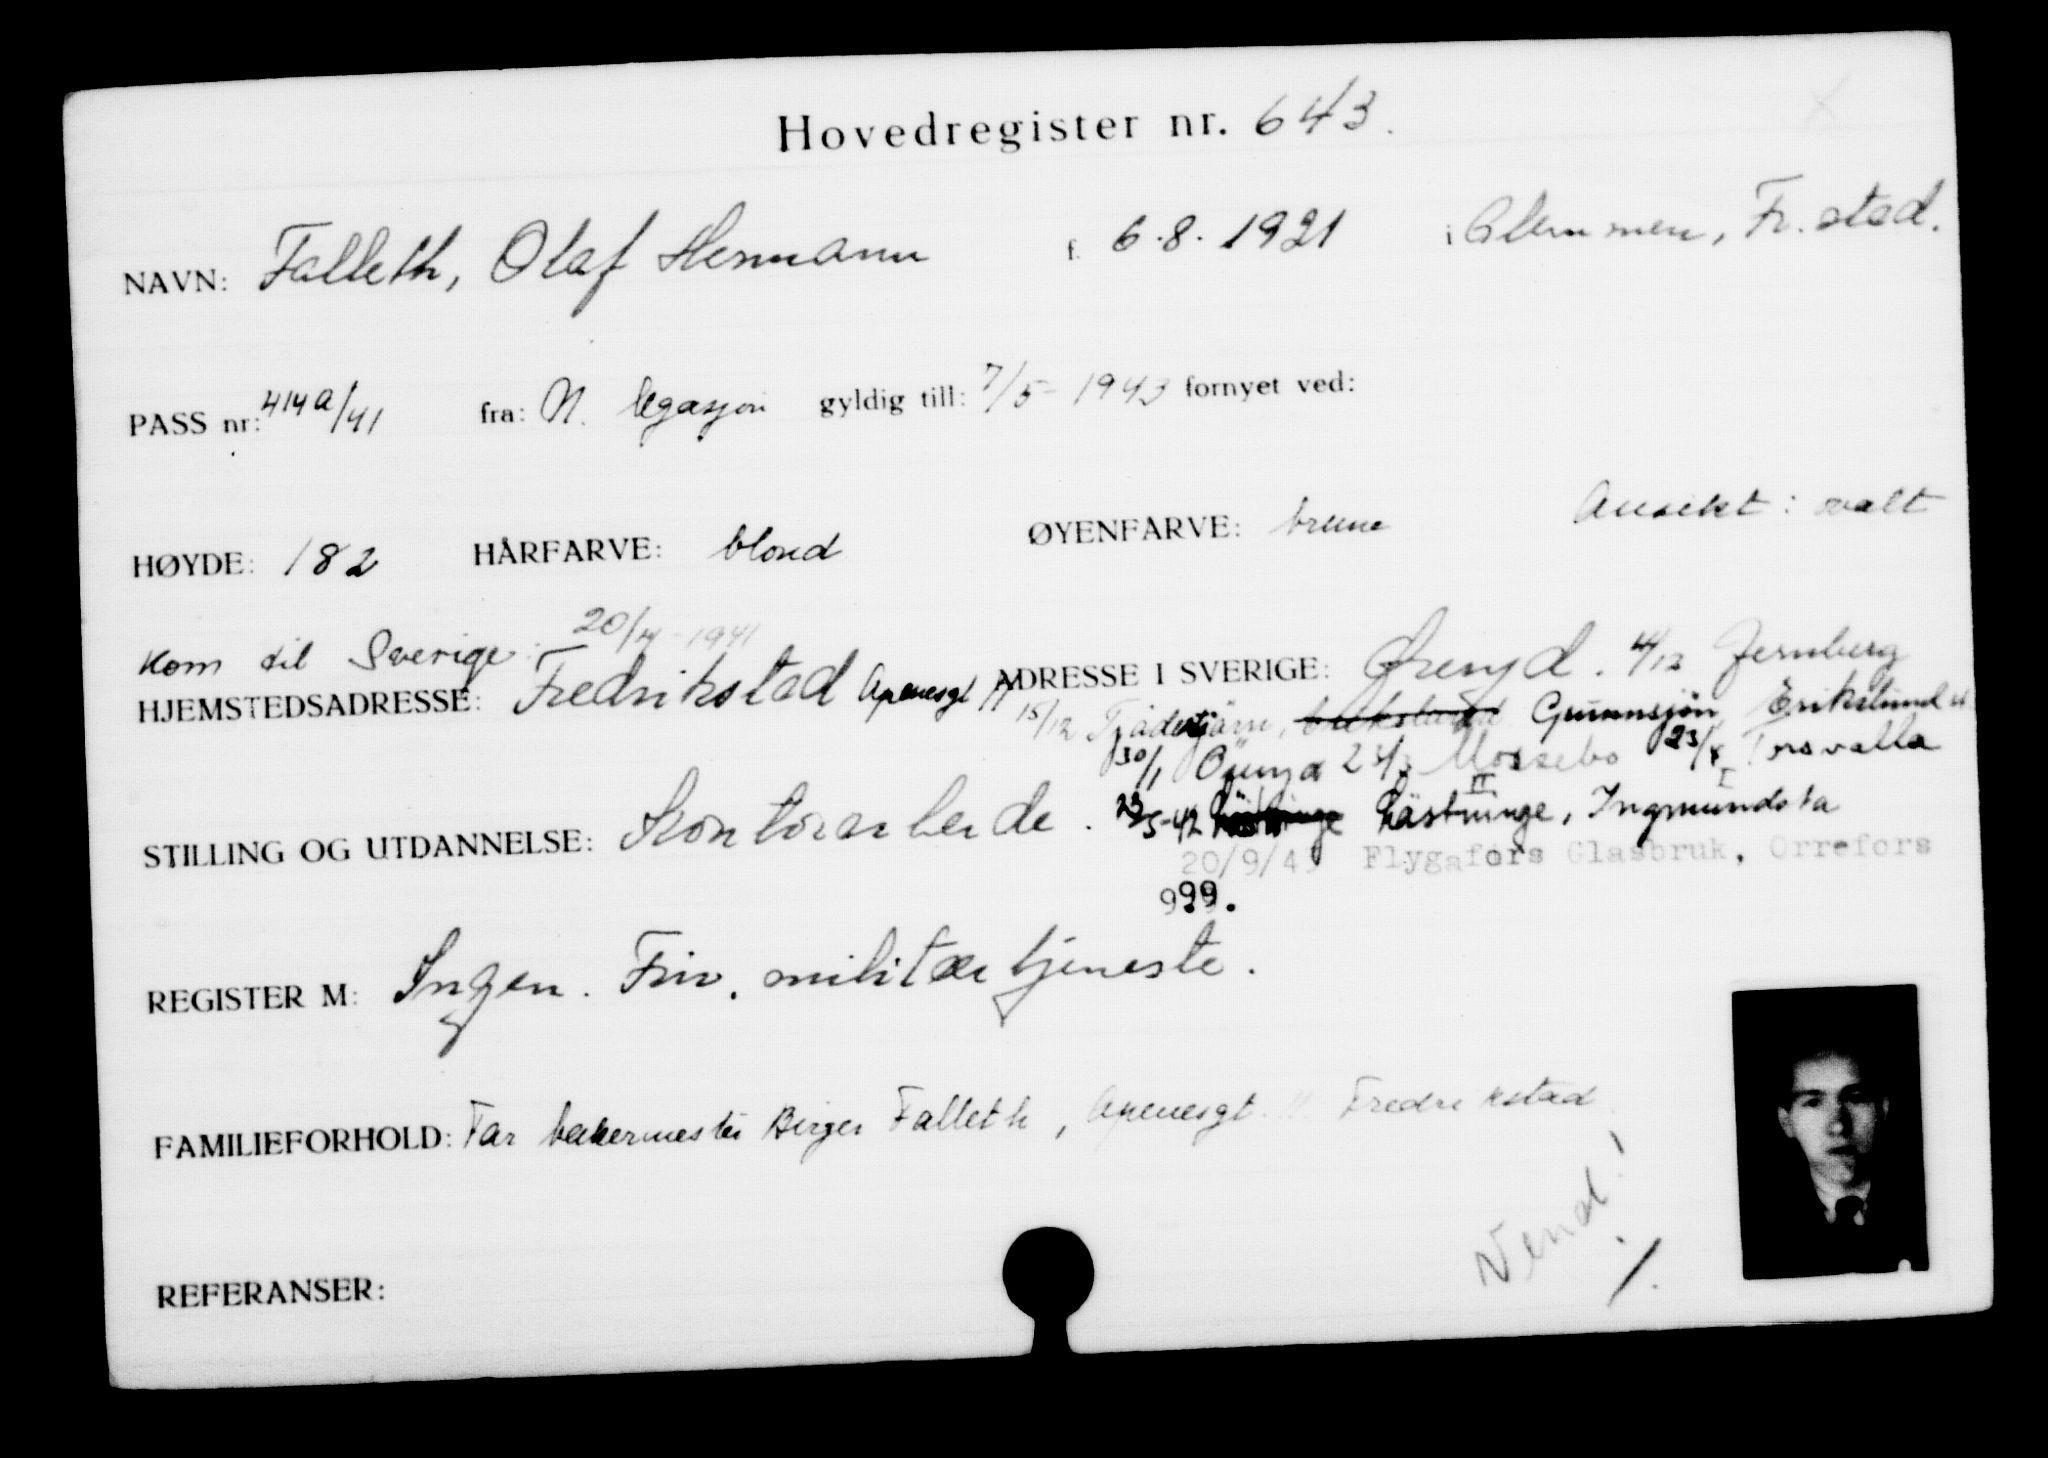 Hovedregister nr. 643.
NAVN: Falleth, Olaf Hermann f. 6.8.1921 i Glemmen, Fr.stad.
PASS nr: 414a/41 fra: N. legasjon gyldig till: 7/5-1943 fornyet ved:
HØYDE: 182 HÅRFARVE: blond ØYENFARVE: brune Ansikt: ovalt
Kom til Sverige: 20/4-1941
HJEMSTEDSADRESSE: Fredrikstad Apenesgt ADRESSE I SVERIGE: Øreryd. 4/12 Jernberg
15/12 Gunnsjön, Erikslund
30/1 Öreryd 23/3 Mossebo 23/4 Torsvalla
STILLING OG UTDANNELSE: Kontorarbeide. 23/5-42 Lästringe, Ingmundsta
20/9/4 Flygafors Glasbruk, Orrefors
999.
REGISTER M: Ingen. Friv. militær tjeneste.
FAMILIEFORHOLD: Far bakermester Birger Falleth, Apenesgt. Fredrikstad
Vend!
REFERANSER: